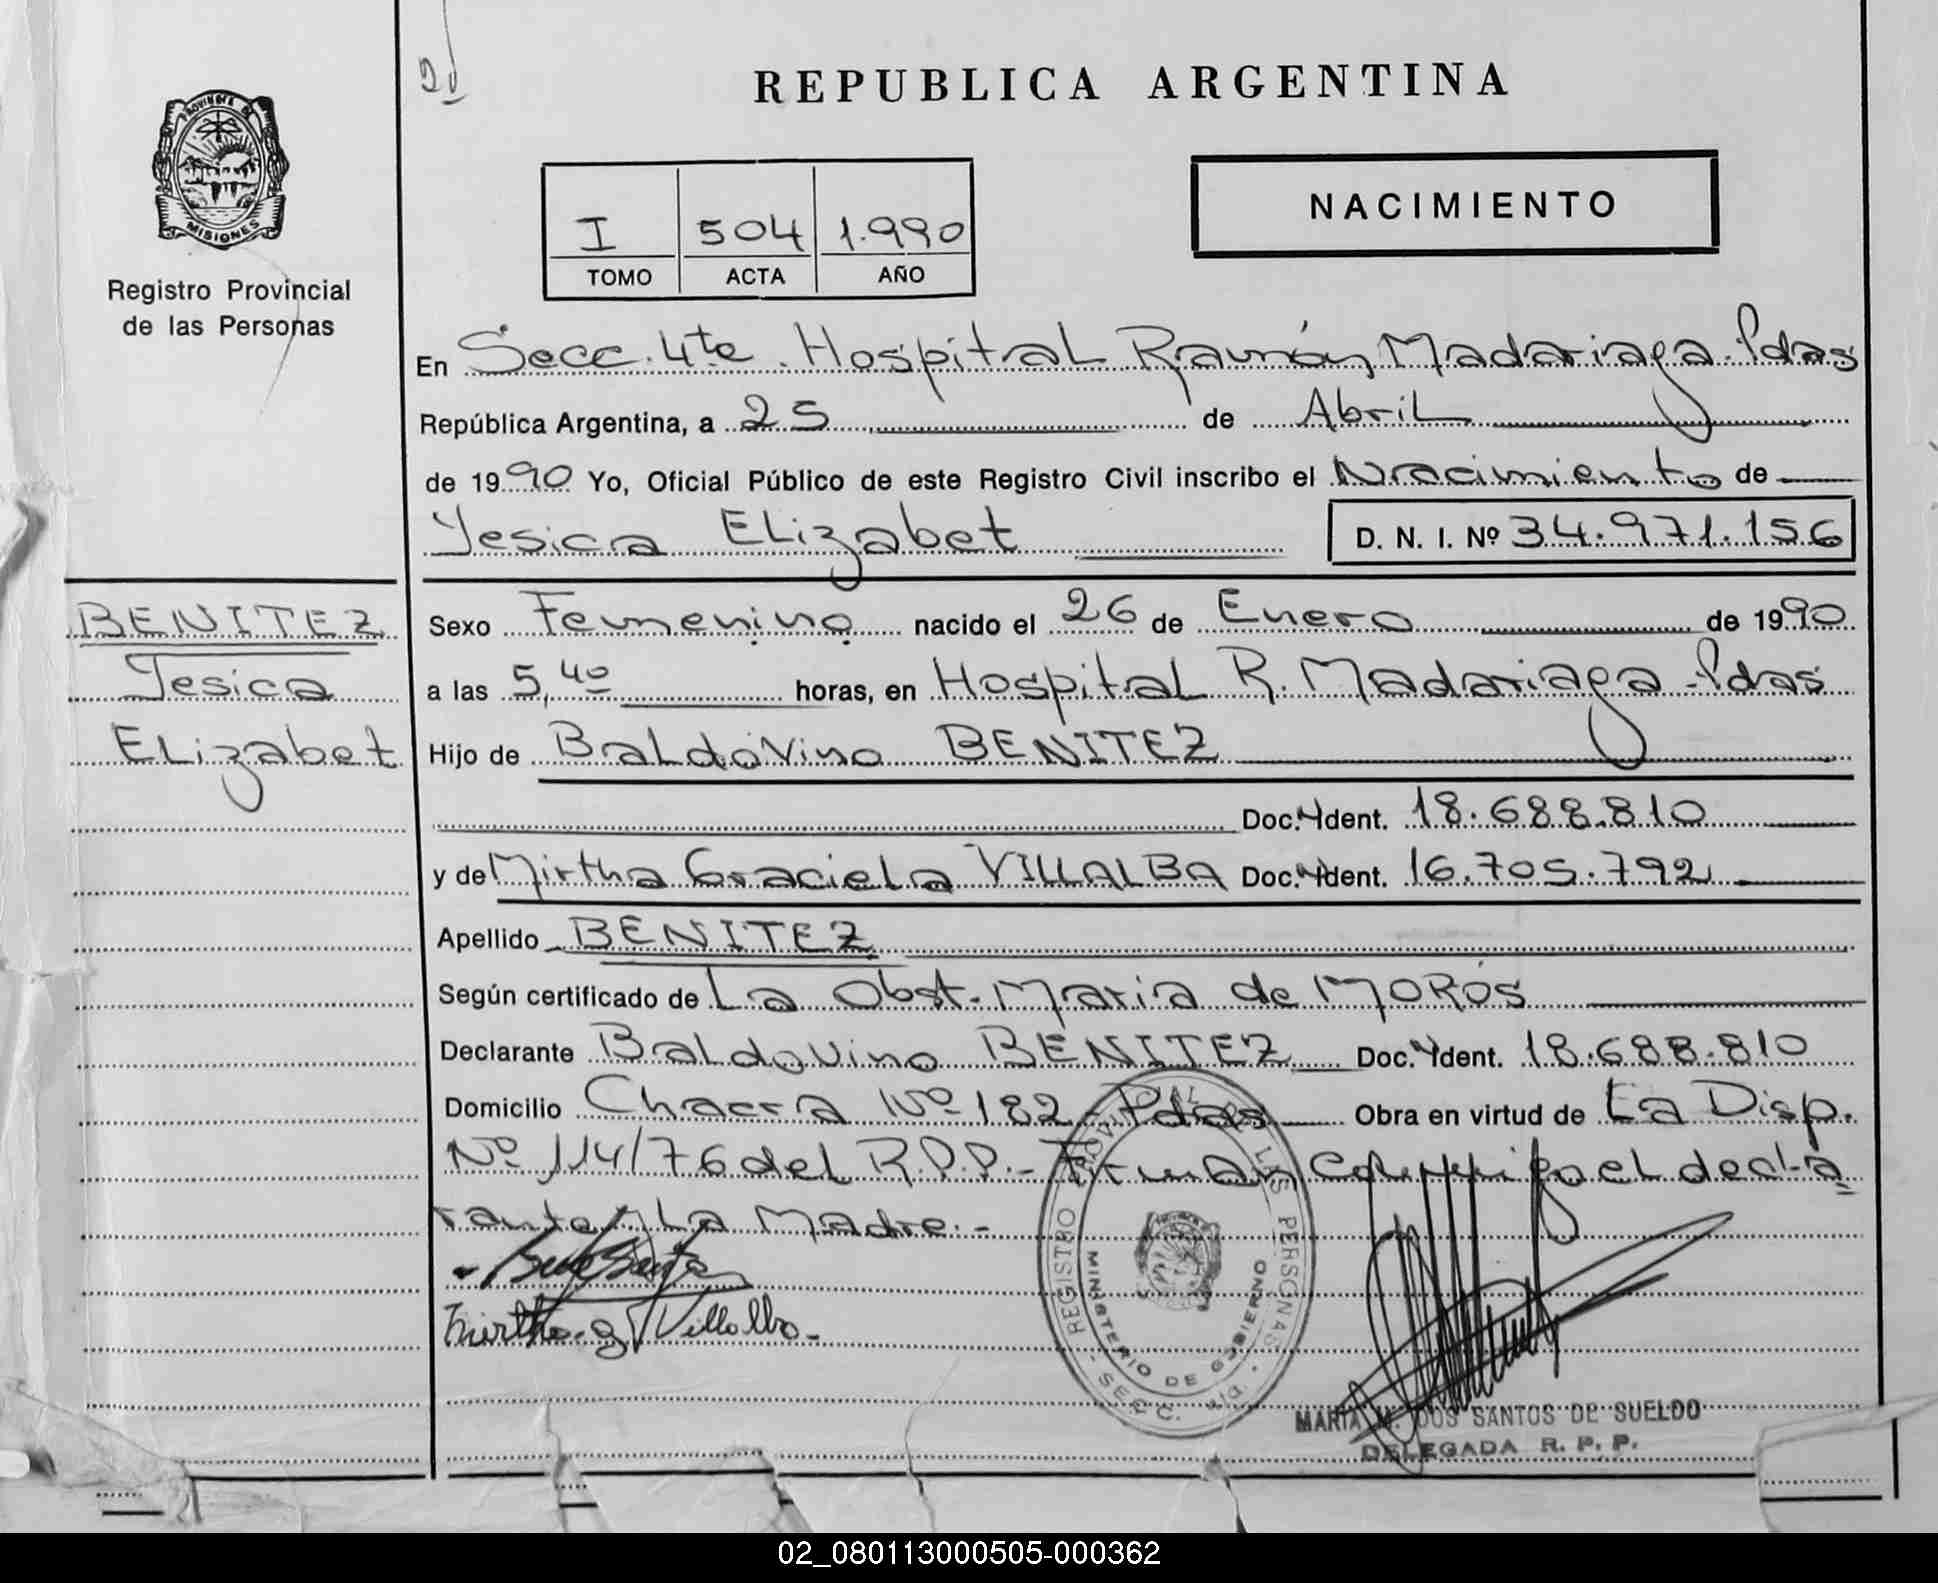 PROVINCIA DE
MISIONES
Registro Provincial
de las Personas
REPUBLICA ARGENTINA
NACIMIENTO
I 504 1.990
TOMO ACTA AÑO
En Secc. 4ta. Hospital Ramón Madariaga - Pdas
República Argentina, a 25 de Abril
de 1990 Yo, Oficial Público de este Registro Civil inscribo el Nacimiento de
Yesica Elizabet D. N. I. Nº 34.971.156
BENITEZ
Yesica
Elizabet
Sexo Femenino nacido el 26 de Enero de 1990
a las 5,40 horas, en Hospital R. Madariaga - Pdas
Hijo de Baldovino BENITEZ
Doc. Ident. 18.688.810
y de Mirtha Graciela VILLALBA Doc. Ident. 16.705.792
Apellido BENITEZ
Según certificado de La Obst. Maria de MOROS
Declarante Baldovino BENITEZ Doc. Ident. 18.688.810
Domicilio Chacra Nº 182 - Pdas Obra en virtud de La Disp.
Nº 114/76 del R.P.P. - Firman conmigo el decla
rante y La Madre. -
Mirtha g Villalba -
REGISTRO PROVINCIAL DE LAS PERSONAS
MINISTERIO DE GOBIERNO
SECC. 4ta.
MARIA M. DOS SANTOS DE SUELDO
DELEGADA R. P. P.
02_080113000505-000362